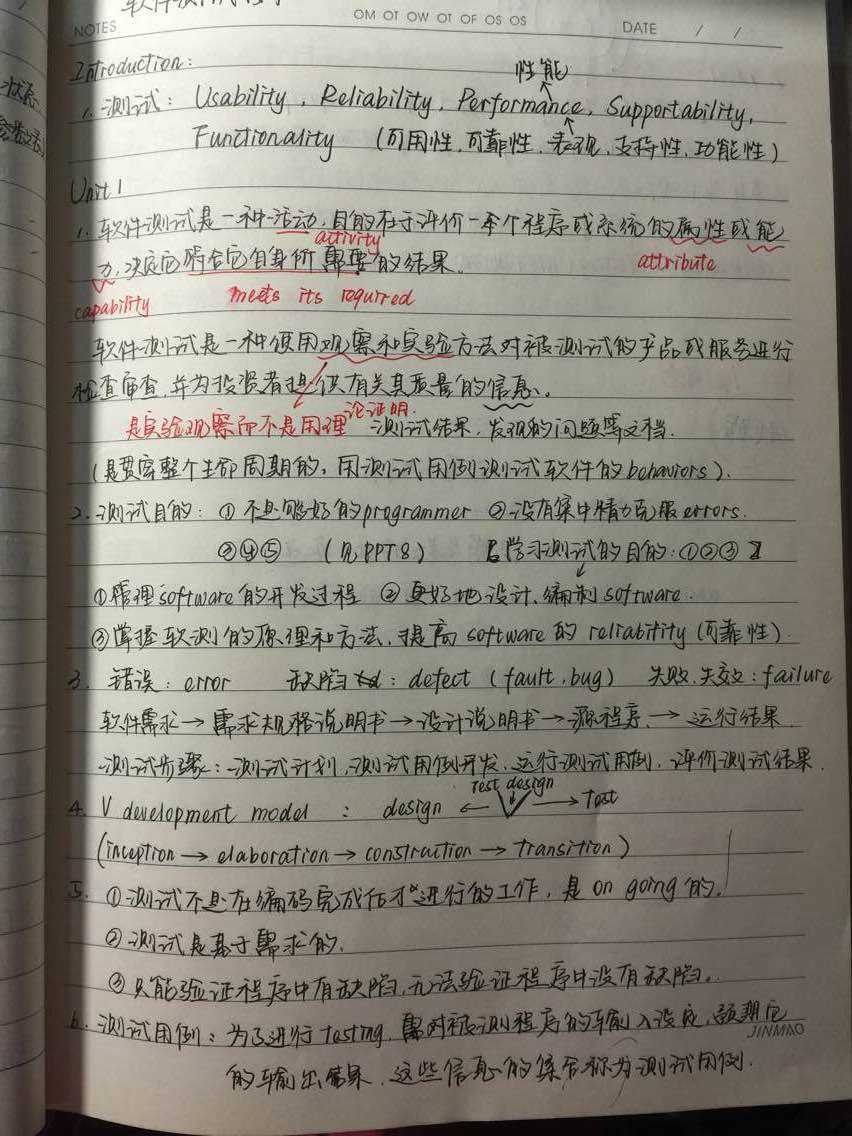 NOTES
OM OT OW OT OF OS OS
DATE / /
Introduction:
性能
1. 测试: Usability, Reliability, Performance, Supportability,
Functionality (可用性, 可靠性, 表现, 支持性, 功能性)
Unit 1
1. 软件测试是一种活动, 目的在于评价一个程序或系统的属性或能
activity
attribute
力, 决定它符合它自身所需要的结果.
capability
meets its required
软件测试是一种使用观察和实验方法对被测试的产品或服务进行
检查审查, 并为投资者提供有关其质量的信息.
是实验观察而不是用理论证明.
测试结果, 发现的问题等文档.
(是贯穿整个生命周期的, 用测试用例测试软件的behaviors).
2. 测试目的: ① 不是够好的programmer ②没有集中精力克服errors.
③④⑤ (见PPT8) 学习测试的目的: ①②③
①管理software的开发过程 ② 更好地设计、编制software.
③掌握软测的原理和方法, 提高software的reliability (可靠性).
3. 错误: error 缺陷: defect (fault, bug) 失败, 失效: failure
软件需求→需求规格说明书→设计说明书→源程序→运行结果
测试步骤: 测试计划, 测试用例开发, 运行测试用例, 评价测试结果.
test design
4. V development model : design ← V → Test
(inception → elaboration → construction → transition)
5. ①测试不是在编码完成后才进行的工作, 是on going的.
②测试是基于需求的.
③只能验证程序中有缺陷, 无法验证程序中没有缺陷.
6. 测试用例: 为了进行testing, 需对被测程序的输入设定, 预期它
JINMAO
的输出结果, 这些信息的集合称为测试用例.